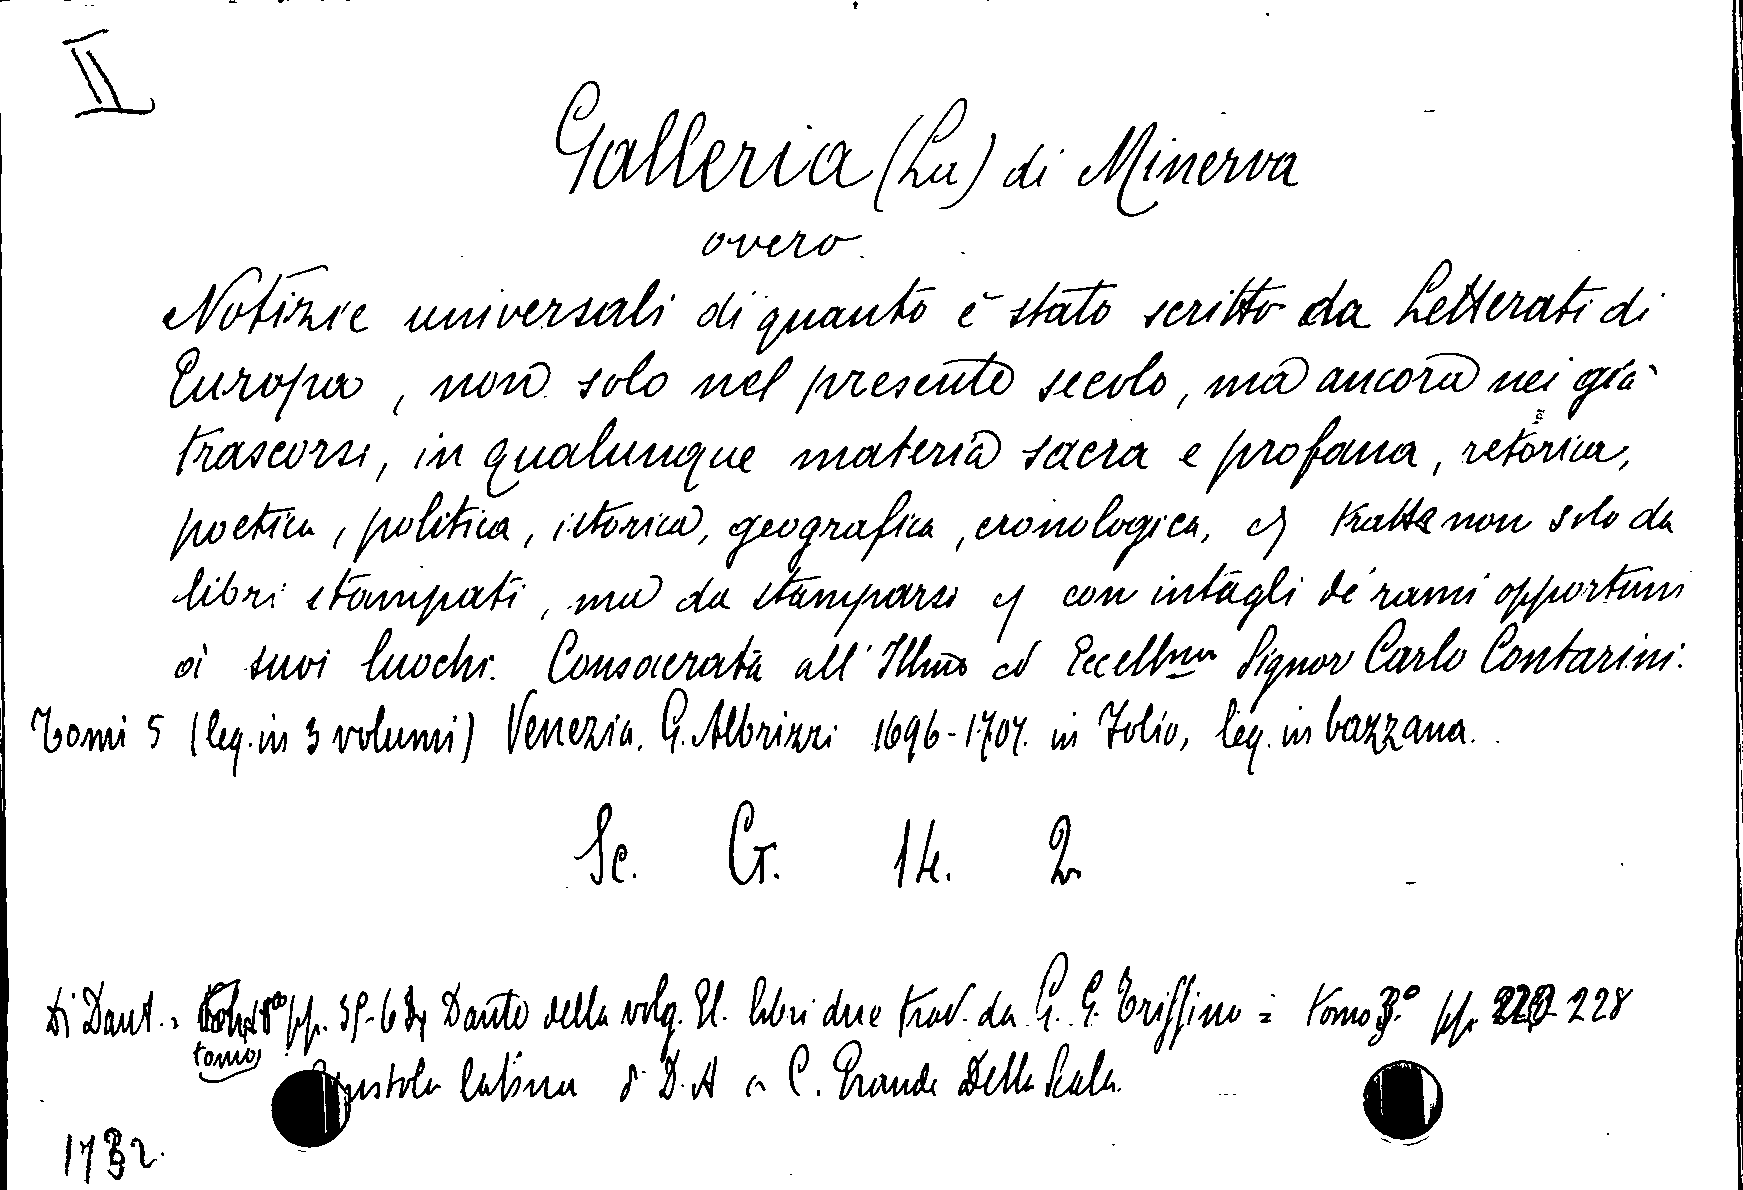 II
Galleria (La) di Minerva
overo
Notizie universali di quanto è stato scritto da Letterati di
Europa, non solo nel presente secolo, ma ancora nei già
trascorsi, in qualunque materia sacra e profana, retorica,
poetica, politica, istorica, geografica, cronologica, &c tratte non solo da
libri stampati, ma da stamparsi & con intagli de' rami opportuni
ai suoi luochi. Consacrata all' Illmo ed Eccellmo Signor Carlo Contarini.
Tomi 5 (leg. in 3 volumi) Venezia. G. Albrizzi 1696-1707. in Folio, leg. in bazzana.
Sc. G. 14. 2
Di Dant. = pp. 35-6 Dante della volg. El. libri due trad. da G. G. Trissino = tomo 3.° pp. 228
tomo
Epistola latina d D. A a C. Grande Della Scala.
1732.